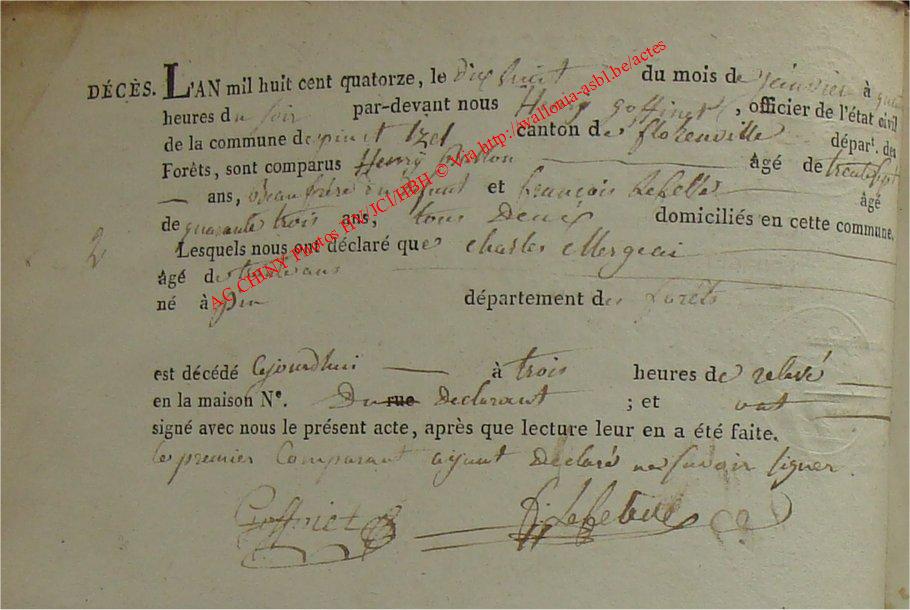 DÉCÈS. L'AN mil huit cent quatorze, le dix huit du mois de janvier à
heures du soir par-devant nous Henry Goffinet, officier de l'état civil
de la commune de pin et Izel canton de florenville départ. des
Forêts, sont comparus Henry âgé de trente sept
ans, Beau frère du et françois Lefebvre âgé
de quarante trois ans, tous Deux domiciliés en cette commune.
2 Lesquels nous ont déclaré que charles Mergeai
âgé de ans
né à pin département des forêts
est décédé cejourdhui à trois heures de relevé
en la maison Nº. Du rue Declarant ; et ont
signé avec nous le présent acte, après que lecture leur en a été faite.
le premier Comparant ayant Declaré ne savoir signer.
Goffinet Lefebvre
AC CHINY Photos HN/JCl/HBH © Via http://wallonia-asbl.be/actes